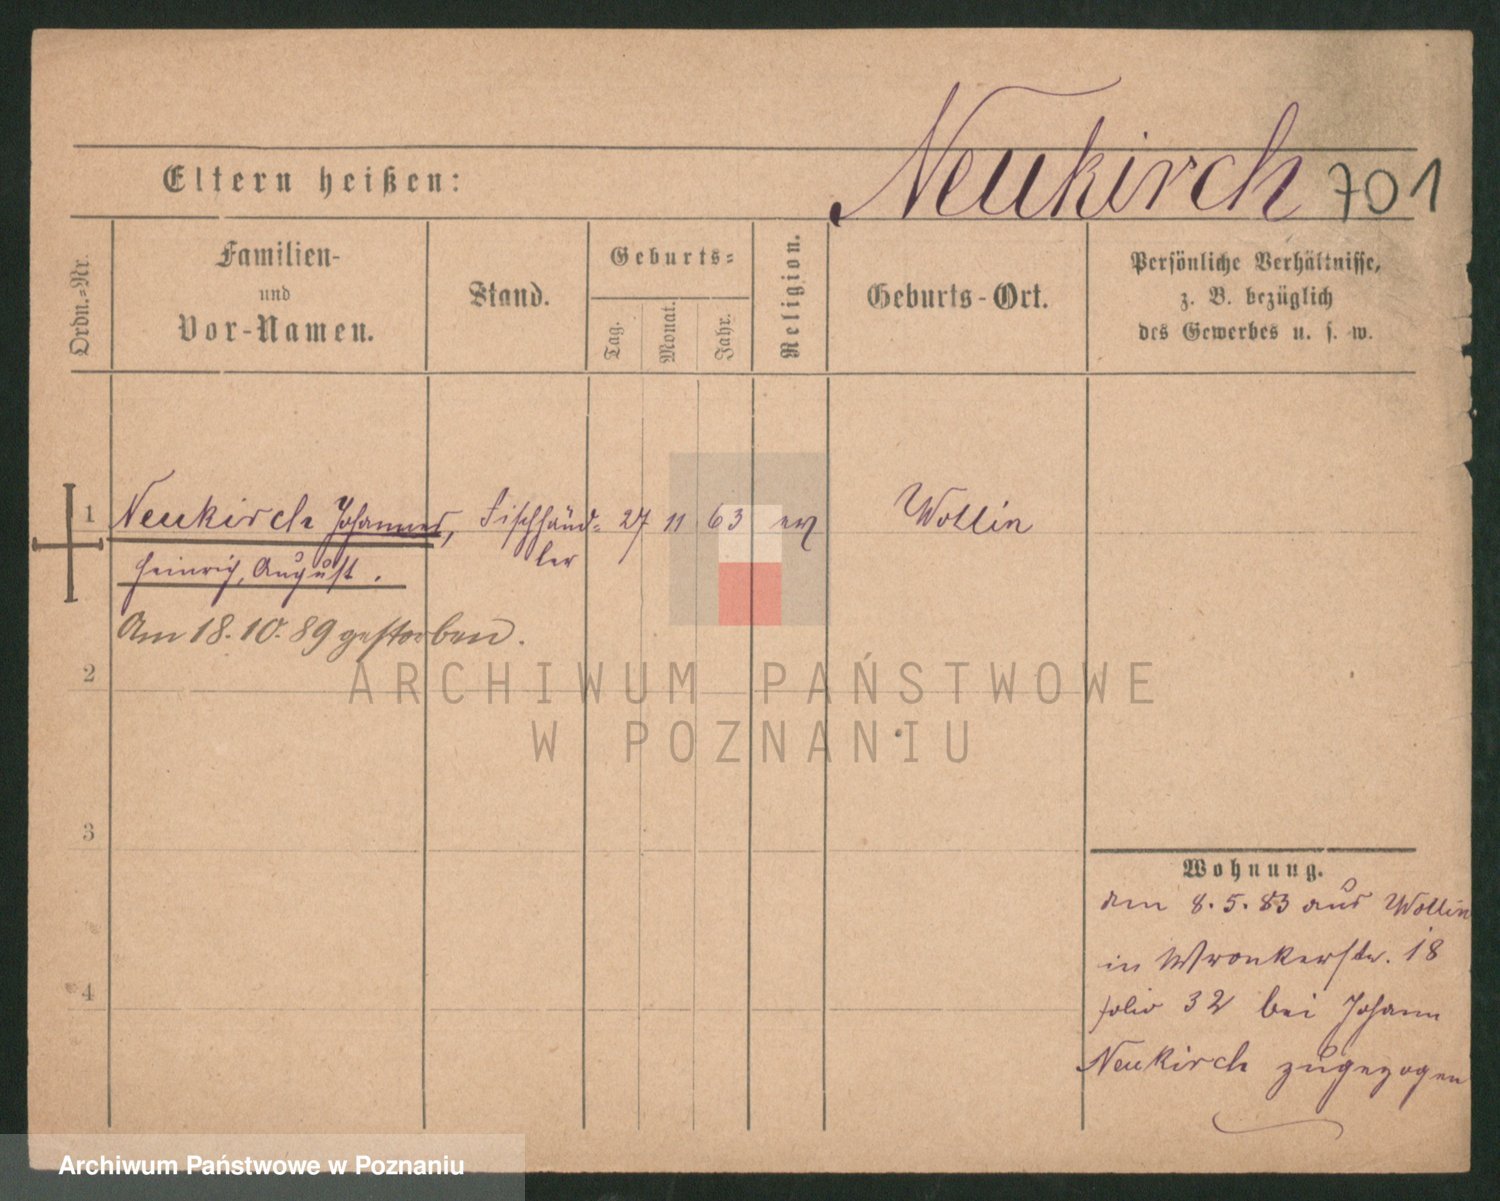 Neukirch 701
Eltern heißen:
Ordn.-Nr.
Familien-
und
Vor-Namen.
Stand.
Geburts-
Tag.
Monat.
Jahr.
Religion.
Geburts-Ort.
Persönliche Verhältnisse,
z. B. bezüglich
des Gewerbes u. s. w.
1 Neukirch Johannes, Fischhänd- 27 11 63 ev Wollin
ler
Heinrich, August.
Am 18.10.89 gestorben.
2
ARCHIWUM PAŃSTWOWE
W POZNANIU
3
Wohnung.
am 8.5.83 aus Wollin
4
in Wronkerstr. 18
folio 32 bei Johann
Neukirch zugezogen
Archiwum Państwowe w Poznaniu